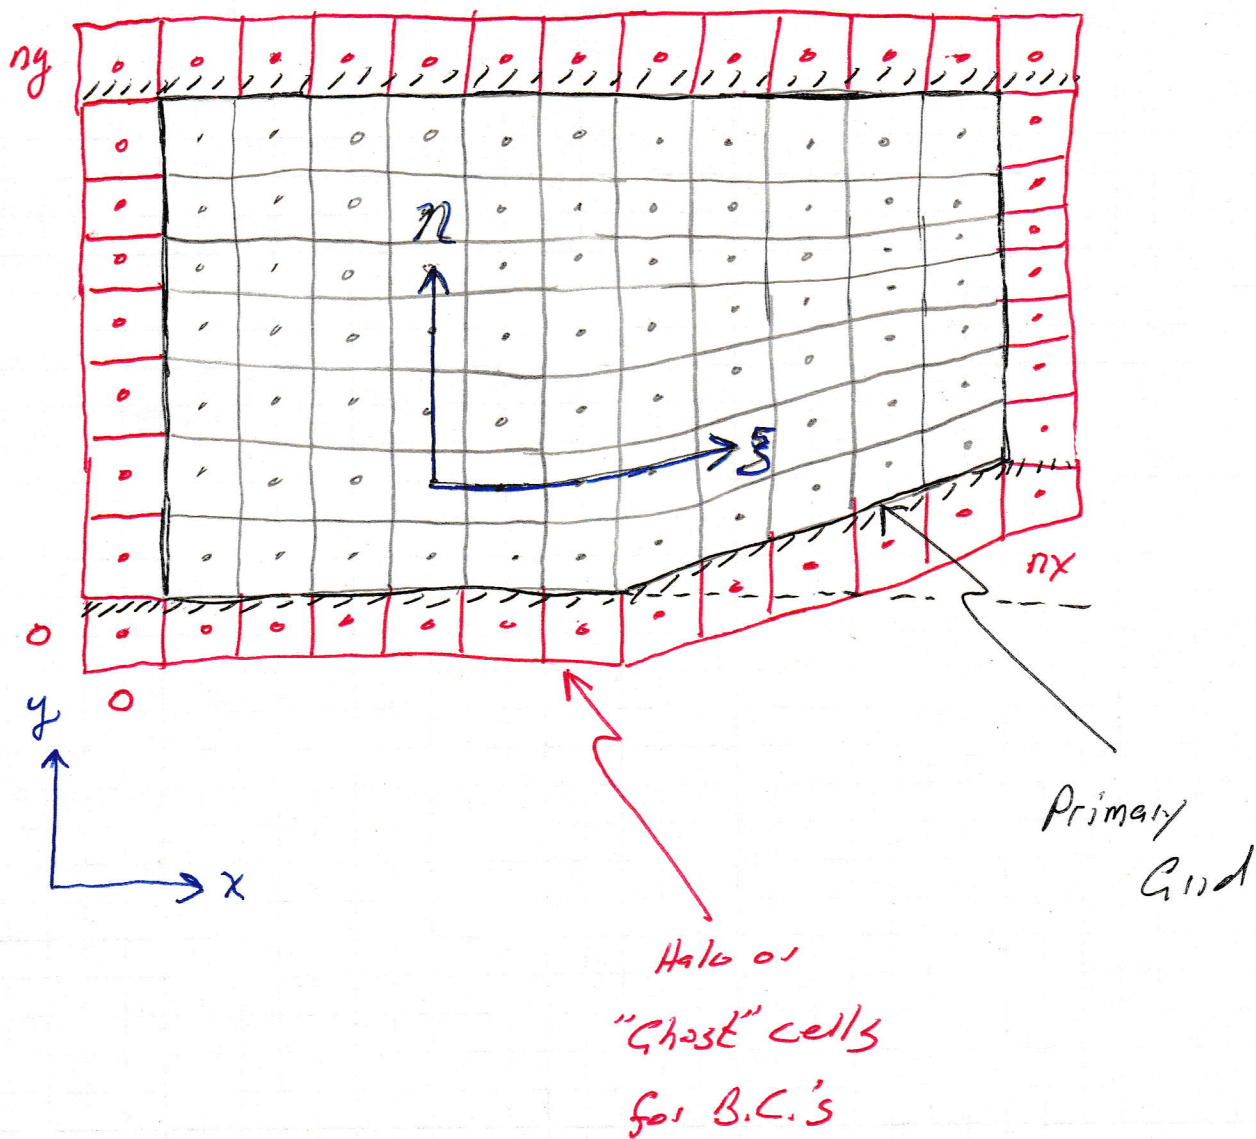 ny
η
ξ
nx
0
0
y
x
Primary
Grid
Halo or
"Ghost" cells
for B.C.'s